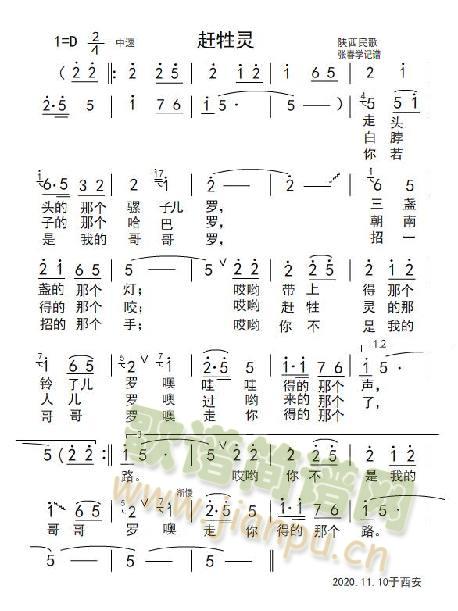 赶牲灵
1=D 2/4 中速 陕西民歌
张春学记谱
( 2 2 ‖: 2 2 5 | 2 2 | 1 6 5 | 2 1 |
2·5 5 | 1 7 6 | 1 5· | 5· ) | 5 5 1 |
走 头
白 脖
你 若
6·5 3 2 | 2 1 | 2 — | 2 — | 6 5 |
头的 那个 骡 子儿 罗, 三 盏
子的 那个 哈 巴 罗, 朝 南
是 我的 哥 哥 罗, 招 一
2 1 6 5 | 5 — | 5 2 2 | 2 2 | 2 1 2 |
盏的 那个 灯; 哎哟 带 上 得 那个
得的 那个 咬; 哎哟 赶 牲 灵 的那
招的 那个 手; 哎哟 你 不 是 我的
1 6 5 | 2 1 | 2·5 5 | 1·1 7 6 | 1 5· |
铃 了儿 罗 噢 哇 哇 得的 那个 声,
人 儿 罗 噢 过 来的 那个 了,
哥 哥 罗 噢 走 你 得的 那个
5 ( 2 2 :‖ 1 5· | 5 2 2 | 2 2 | 2 1 2 |
路。 哎哟 你 不 是 我的
渐慢
1 6 5 | 2 1 | 2·5 5 | 1·1 7 6 | 1 5· |
哥 哥 罗 噢 走 你 得的 那个 路。
5 — | 5 — | 5 5 ‖
2020.11.10于西安
歌谱简谱网
www.jianpu.cn